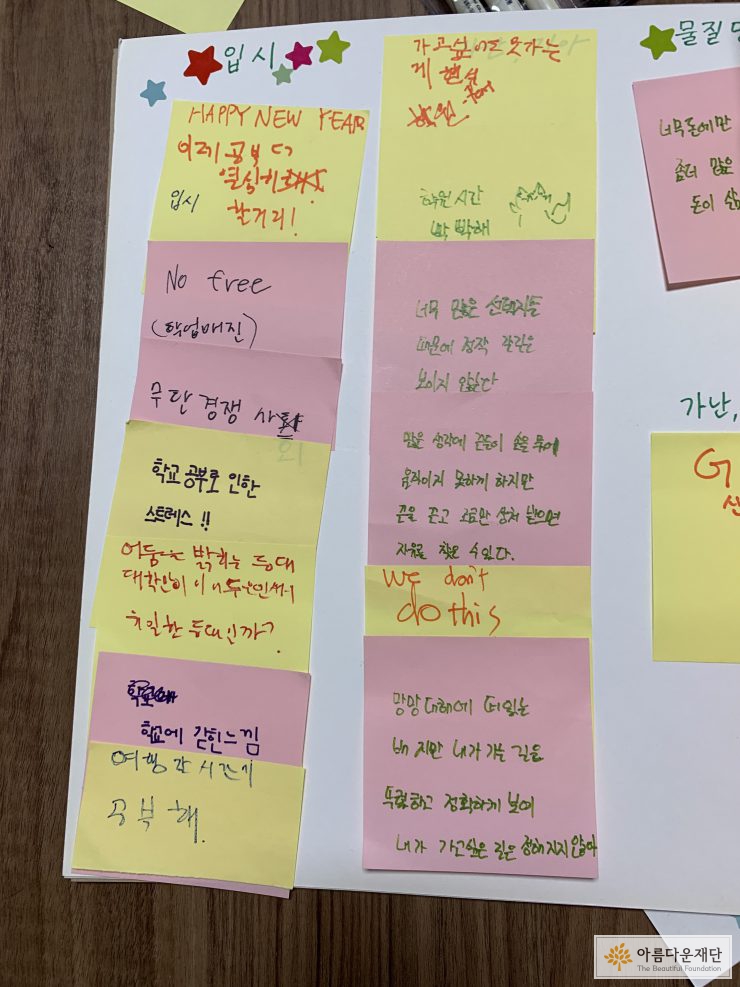 입시
HAPPY NEW YEAR
이제 공부 더
열심히
할거리!
입시
No free
(학업매진)
무단경쟁 사회
학교 공부로 인한
스트레스 !!
어둠을 밝히는 등대
대학만이 이 어두운
유일한 등대인가?
학교에 갇힌느낌
여행 갈 시간에
공부 해.
가고싶어도 못가는
게 현실
학원시간
빡빡해
너무 많은 선택지들
때문에 정작 갈길은
보이지 않는다
많은 생각에 끈들이 손을 묶어
움직이지 못하게 하지만
끈을 끊고 조금만 상처 받으면
자유를 찾을 수 있다.
We don't
do this
망망대해에 떠있는
배 지만 내가 가는 길은
뚜렷하고 정확하게 보여
내가 가고싶은 길은 정해지지 않아
물질
너무 돈에만
좀더 많은
돈이 삶
가난,
G
아름다운재단
The Beautiful Foundation